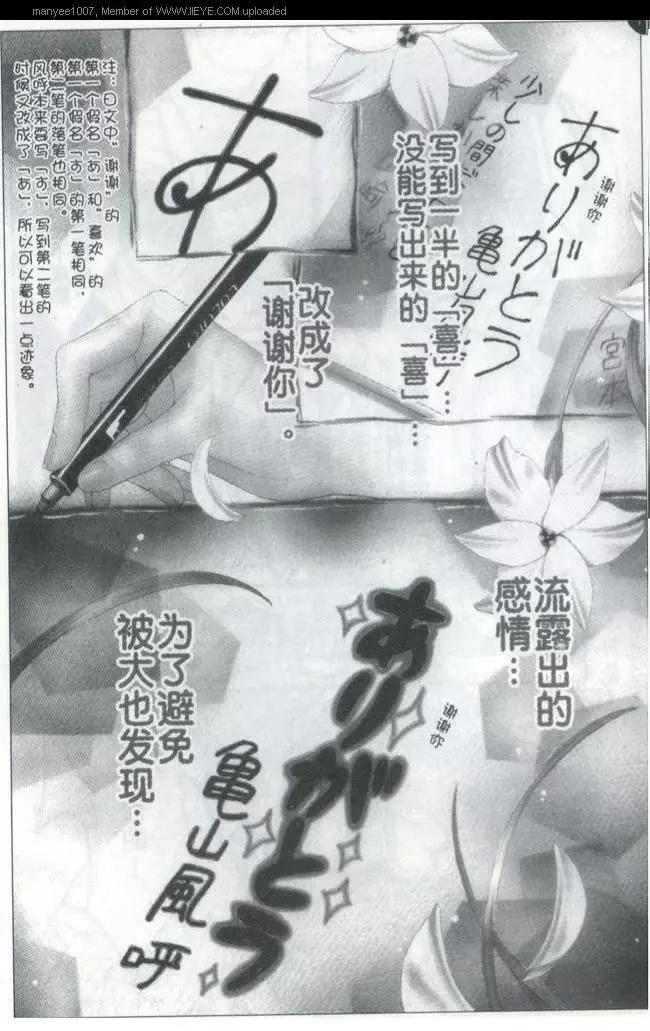 manyee1007, Member of WWW.IIEYE.COM uploaded
少しの間だ
ありがとう
谢谢你
亀山
宮本
写到一半的「喜」…
没能写出来的「喜」…
改成了
「谢谢你」。
あ
注：日文中“谢谢”的
第一个假名「あ」和“喜欢”的
第一个假名「お」的第一笔相同，
第二笔的落笔也相同。
风呼本来要写「お」，写到第二笔的
时候又改成了「あ」，所以可以看出一点迹象。
流露出的
感情…
ありがとう
谢谢你
亀山風呼
为了避免
被犬也发现…